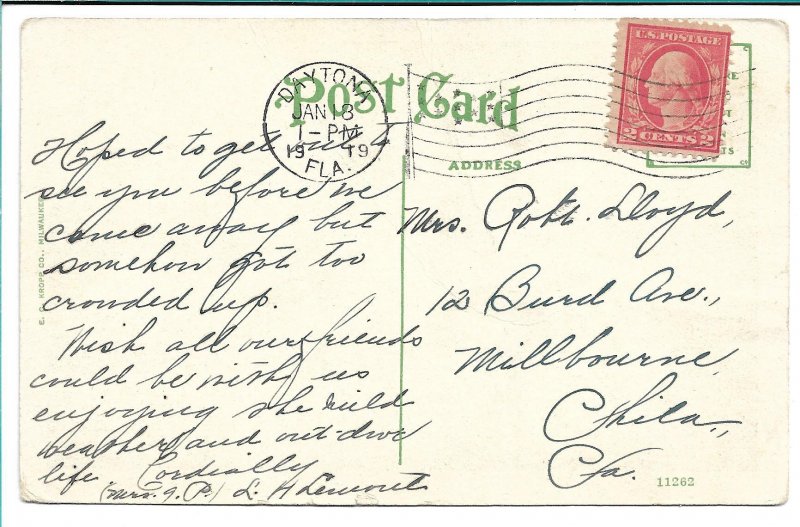 Post Card
DAYTONA
JAN 18
1-PM
19 19
FLA.
U.S. POSTAGE
2 CENTS 2
ADDRESS
Hoped to get out &
see you before we
came away but
somehow got too
crowded up.
Wish all our friends
could be with us
enjoying the mild
weather and out-door
life. Cordially
(Mrs. J. P.) L. H.
Mrs. Robt. Lloyd,
12 Burd Ave.,
Millbourne,
Phila.,
Pa.
E. C. KROPP CO., MILWAUKEE
11262